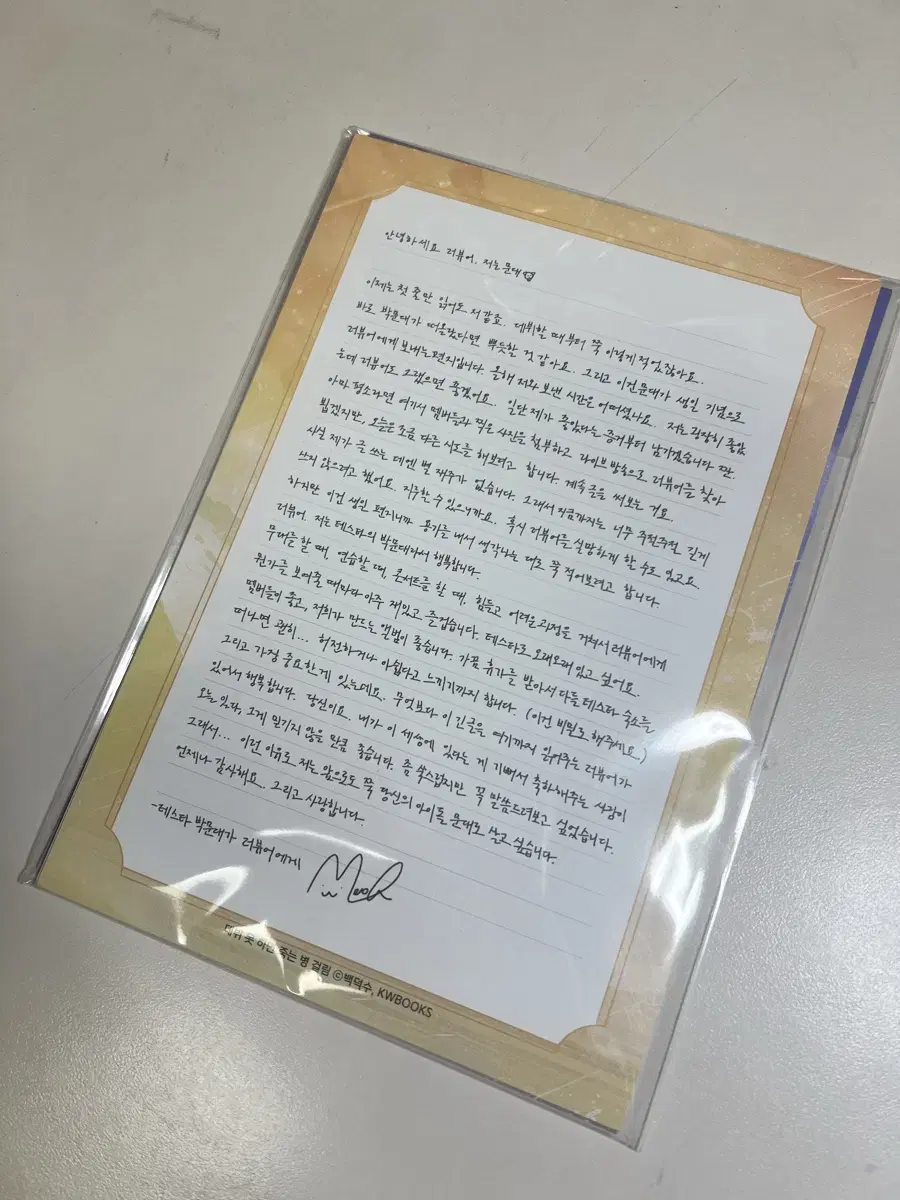 안녕하세요 러뷰어. 저는 문대
이제는 첫 줄만 읽어도 저 같죠. 데뷔할 때부터 쭉 이렇게 적었잖아요.
바로 박문대가 떠올랐다면 뿌듯할 것 같아요. 그리고 이건 문대가 생일 기념으로
러뷰어에게 보내는 편지입니다. 올해 저와 보낸 시간은 어떠셨나요. 저는 굉장히 좋았
는데 러뷰어도 그랬으면 좋겠어요. 일단 제가 좋았다는 증거부터 남기겠습니다 짠.
아마 평소라면 여기서 멤버들과 찍은 사진을 첨부하고 라이브 방송으로 러뷰어를 찾아
뵙겠지만, 오늘은 조금 다른 시도를 해보려고 합니다. 계속 글을 써보는 거요.
사실 제가 글 쓰는 데엔 별 재주가 없습니다. 그래서 지금까지는 너무 주절주절 길게
쓰지 않으려고 했어요. 지루할 수 있으니까요. 혹시 러뷰어를 실망하게 할 수도 있고요.
하지만 이건 생일 편지니까 용기를 내서 생각나는 대로 쭉 적어보려고 합니다.
러뷰어. 저는 테스타의 박문대라서 행복합니다.
무대를 할 때, 연습할 때, 콘서트를 할 때, 힘들고 어려운 과정을 거쳐서 러뷰어에게
뭔가를 보여줄 때마다 아주 재밌고 즐겁습니다. 테스타로 오래오래 있고 싶어요.
멤버들이 좋고, 저희가 만드는 앨범이 좋습니다. 가끔 휴가를 받아서 다들 테스타 숙소를
떠나면 괜히... 허전하거나 아쉽다고 느끼기까지 합니다. (이건 비밀로 해주세요.)
그리고 가장 중요한 게 있는데요. 무엇보다 이 긴 글을 여기까지 읽어주는 러뷰어가
있어서 행복합니다. 당신이요. 내가 이 세상에 있다는 게 기뻐서 축하해주는 사람이
오늘 있다, 그게 믿기지 않을 만큼 좋습니다. 좀 쑥스럽지만 꼭 말씀드려보고 싶었습니다.
그래서... 이런 이유로 저는 앞으로도 쭉 당신의 아이돌 문대로 살고 싶습니다.
언제나 감사해요. 그리고 사랑합니다.
-테스타 박문대가 러뷰어에게
데뷔 못 하면 죽는 병 걸림 ©백덕수, KWBOOKS